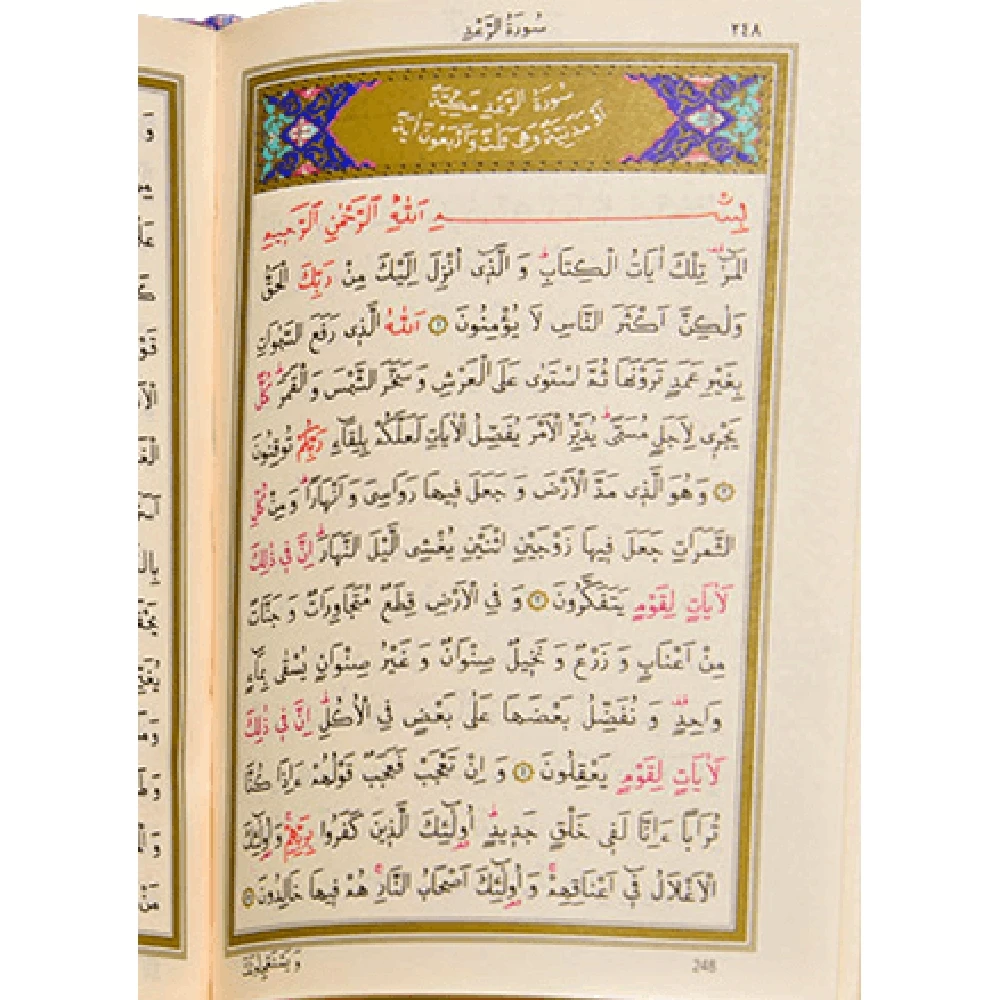 سُورَةُ الرَّعْدِ
٢٤٨
سُورَةُ الرَّعْدِ مَكِّيَّةٌ
اَوْ مَدَنِيَّةٌ وَهِيَ ثَلٰثٌ وَاَرْبَعُونَ اٰيَةً
بِسْمِ اللّٰهِ الرَّحْمٰنِ الرَّحِيمِ
الٓمٓرٰ تِلْكَ اٰيَاتُ الْكِتَابِ وَ الَّذ۪ٓى اُنْزِلَ اِلَيْكَ مِنْ رَبِّكَ الْحَقُّ
وَلٰكِنَّ اَكْثَرَ النَّاسِ لَا يُؤْمِنُونَ ١ اَللّٰهُ الَّذ۪ى رَفَعَ السَّمٰوَاتِ
بِغَيْرِ عَمَدٍ تَرَوْنَهَا ثُمَّ اسْتَوٰى عَلَى الْعَرْشِ وَ سَخَّرَ الشَّمْسَ وَ الْقَمَرَ كُلٌّ
يَجْر۪ى لِاَجَلٍ مُسَمًّى يُدَبِّرُ الْاَمْرَ يُفَصِّلُ الْاٰيَاتِ لَعَلَّكُمْ بِلِقَٓاءِ رَبِّكُمْ تُوقِنُونَ
٢ وَ هُوَ الَّذ۪ى مَدَّ الْاَرْضَ وَ جَعَلَ ف۪يهَا رَوَاسِىَ وَ اَنْهَارًا وَ مِنْ كُلِّ
الثَّمَرَاتِ جَعَلَ ف۪يهَا زَوْجَيْنِ اثْنَيْنِ يُغْشِى الَّيْلَ النَّهَارَ اِنَّ ف۪ى ذٰلِكَ
لَاٰيَاتٍ لِقَوْمٍ يَتَفَكَّرُونَ ٣ وَ فِى الْاَرْضِ قِطَعٌ مُتَجَاوِرَاتٌ وَ جَنَّاتٌ
مِنْ اَعْنَابٍ وَ زَرْعٌ وَ نَخ۪يلٌ صِنْوَانٌ وَ غَيْرُ صِنْوَانٍ يُسْقٰى بِمَٓاءٍ
وَاحِدٍ وَ نُفَضِّلُ بَعْضَهَا عَلٰى بَعْضٍ فِى الْاُكُلِ اِنَّ ف۪ى ذٰلِكَ
لَاٰيَاتٍ لِقَوْمٍ يَعْقِلُونَ ٤ وَ اِنْ تَعْجَبْ فَعَجَبٌ قَوْلُهُمْ ءَاِذَا كُنَّا
تُرَابًا ءَاِنَّا لَف۪ى خَلْقٍ جَد۪يدٍ اُولٰٓئِكَ الَّذ۪ينَ كَفَرُوا بِرَبِّهِمْ وَ اُولٰٓئِكَ
الْاَغْلَالُ ف۪ٓى اَعْنَاقِهِمْ وَ اُولٰٓئِكَ اَصْحَابُ النَّارِ هُمْ ف۪يهَا خَالِدُونَ ٥
وَيَسْتَعْجِلُونَكَ
248